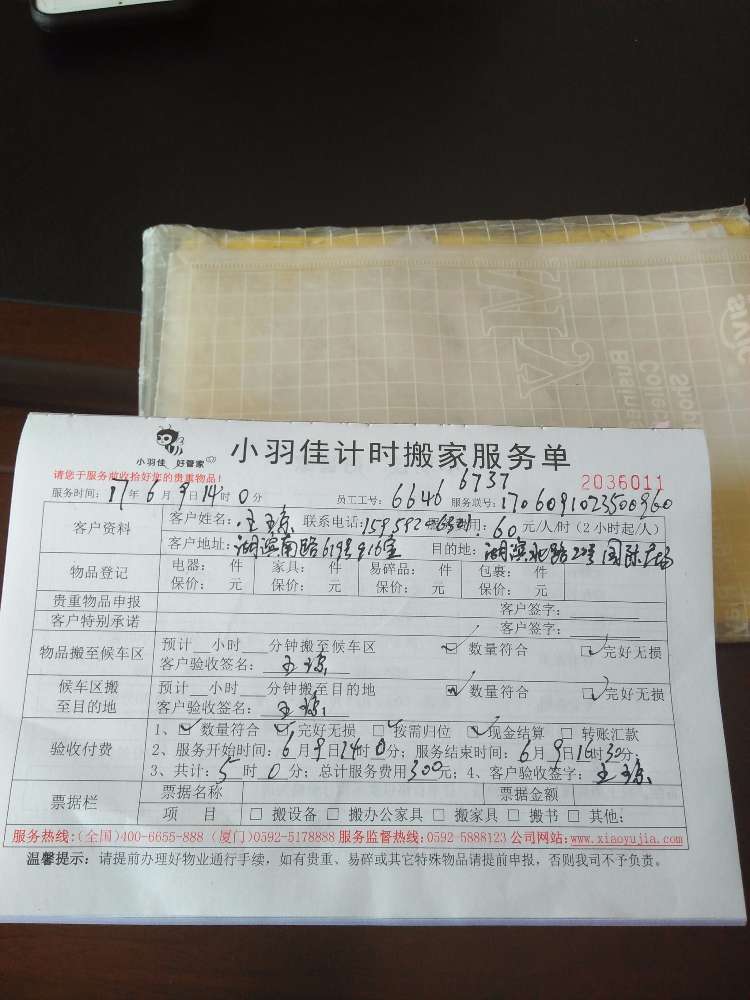 SIVIC
Shop
Colle
Busine
小羽佳 好管家
小羽佳计时搬家服务单
请您于服务前收拾好您的贵重物品!
6737
2036011
服务时间: 17年6月9日14时0分 员工工号: 6646 服务联号: 1706091023500960
客户资料
客户姓名: 联系电话: 费用: 60元/人/时 (2小时起/人)
客户地址: 湖滨南路619号916室 目的地: 湖滨北路22号国际广场
物品登记
电器: 件 家具: 件 易碎品: 件 包裹: 件
保价: 元 保价: 元 保价: 元 保价: 元
贵重物品申报 客户签字:
客户特别承诺 客户签字:
物品搬至候车区
预计__小时__分钟搬至候车区 数量符合 完好无损
客户验收签名:
候车区搬
至目的地
预计__小时__分钟搬至目的地 数量符合 完好无损
客户验收签名:
验收付费
1、数量符合 完好无损 按需归位 现金结算 转账汇款
2、服务开始时间: 6月9日14时0分; 服务结束时间: 6月9日16时30分;
3、共计: 5时0分; 总计服务费用300元; 4、客户验收签字:
票据栏
票据名称 票据金额
项 目 搬设备 搬办公家具 搬家具 搬书 其他:
服务热线:(全国)400-6655-888 (厦门)0592-5178888 服务监督热线:0592-5888123 公司网站:www.xiaoyujia.com
温馨提示: 请提前办理好物业通行手续，如有贵重、易碎或其它特殊物品请提前申报，否则我司不予负责。